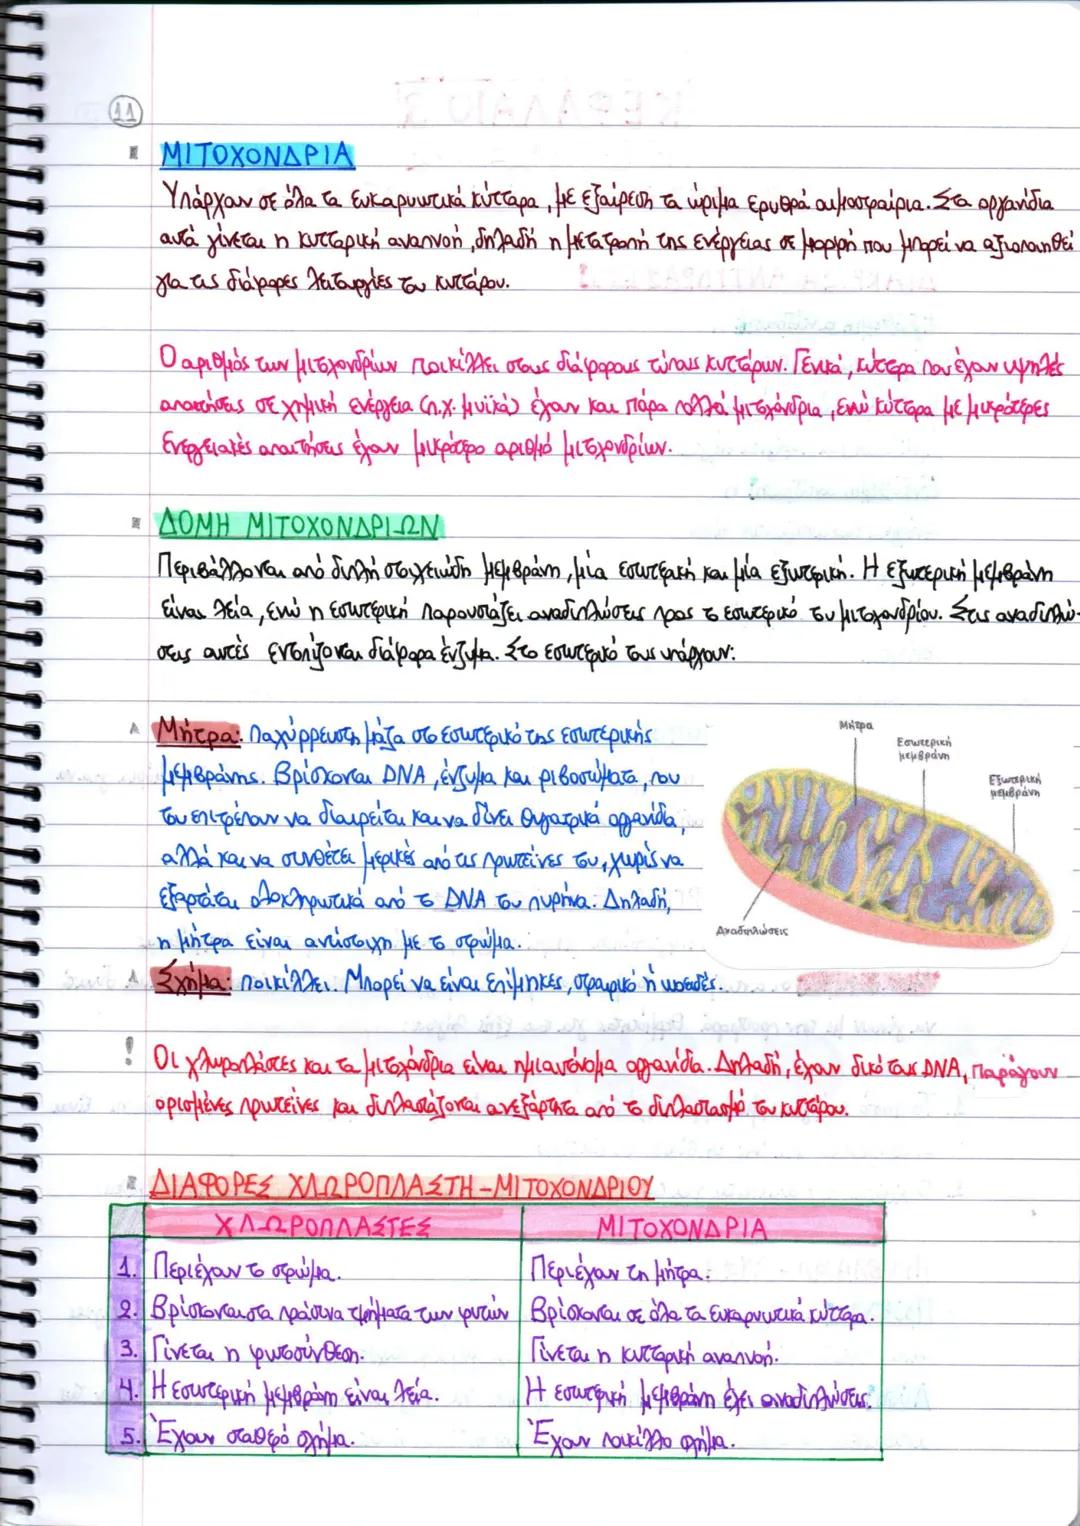 11
ΜΙΤΟΧΟΝΔΡΙΑ
Υπάρχουν σε όλα τα ευκαρυωτικά κύτταρα, με εξαίρεση τα ώριμα ερυθρά αιμοσφαίρια. Στα οργανίδια
αυτά γίνεται η κυτταρική αναπνοή, δηλαδή η μετατροπή της ενέργειας σε μορφή που μπορεί να αξιοποιηθεί
για τις διάφορες λειτουργίες του κυττάρου.
Ο αριθμός των μιτοχονδρίων ποικίλλει στους διάφορους τύπους κυττάρων. Γενικά, κύτταρα που έχουν υψηλές
απαιτήσεις σε χημική ενέργεια (π.χ. μυϊκά) έχουν και πάρα πολλά μιτοχόνδρια, ενώ κύτταρα με μικρότερες
ενεργειακές απαιτήσεις έχουν μικρότερο αριθμό μιτοχονδρίων.
ΔΟΜΗ ΜΙΤΟΧΟΝΔΡΙΩΝ
Περιβάλλονται από διπλή στοιχειώδη μεμβράνη, μία εσωτερική και μία εξωτερική. Η εξωτερική μεμβράνη
είναι λεία, ενώ η εσωτερική παρουσιάζει αναδιπλώσεις προς το εσωτερικό του μιτοχονδρίου. Στις αναδιπλώ-
σεις αυτές εντοπίζονται διάφορα ένζυμα. Στο εσωτερικό τους υπάρχουν:
Μήτρα: Παχύρρευστη μάζα στο εσωτερικό της εσωτερικής
μεμβράνης. Βρίσκονται DNA, ένζυμα και ριβοσώματα, που
του επιτρέπουν να διαιρείται και να δίνει θυγατρικά οργανίδια,
αλλά και να συνθέτει μερικές από τις πρωτεΐνες του, χωρίς να
εξαρτάται ολοκληρωτικά από το DNA του πυρήνα. Δηλαδή,
η μήτρα είναι αντίστοιχη με το στρώμα.
Μήτρα
Εσωτερική
μεμβράνη
Εξωτερική
μεμβράνη
Αναδιπλώσεις
Σχήμα: Ποικίλλει. Μπορεί να είναι επίμηκες, σφαιρικό ή ωοειδές.
! Οι χλωροπλάστες και τα μιτοχόνδρια είναι ημιαυτόνομα οργανίδια. Δηλαδή, έχουν δικό τους DNA, παράγουν
ορισμένες πρωτεΐνες και διπλασιάζονται ανεξάρτητα από το διπλασιασμό του κυττάρου.
ΔΙΑΦΟΡΕΣ ΧΛΩΡΟΠΛΑΣΤΗ-ΜΙΤΟΧΟΝΔΡΙΟΥ
ΧΛΩΡΟΠΛΑΣΤΕΣ ΜΙΤΟΧΟΝΔΡΙΑ
1. Περιέχουν το στρώμα. Περιέχουν τη μήτρα.
2. Βρίσκονται στα πράσινα τμήματα των φυτών Βρίσκονται σε όλα τα ευκαρυωτικά κύτταρα.
3. Γίνεται η φωτοσύνθεση. Γίνεται η κυτταρική αναπνοή.
4. Η εσωτερική μεμβράνη είναι λεία. Η εσωτερική μεμβράνη έχει αναδιπλώσεις.
5. Έχουν σταθερό σχήμα. Έχουν ποικίλλο σχήμα.